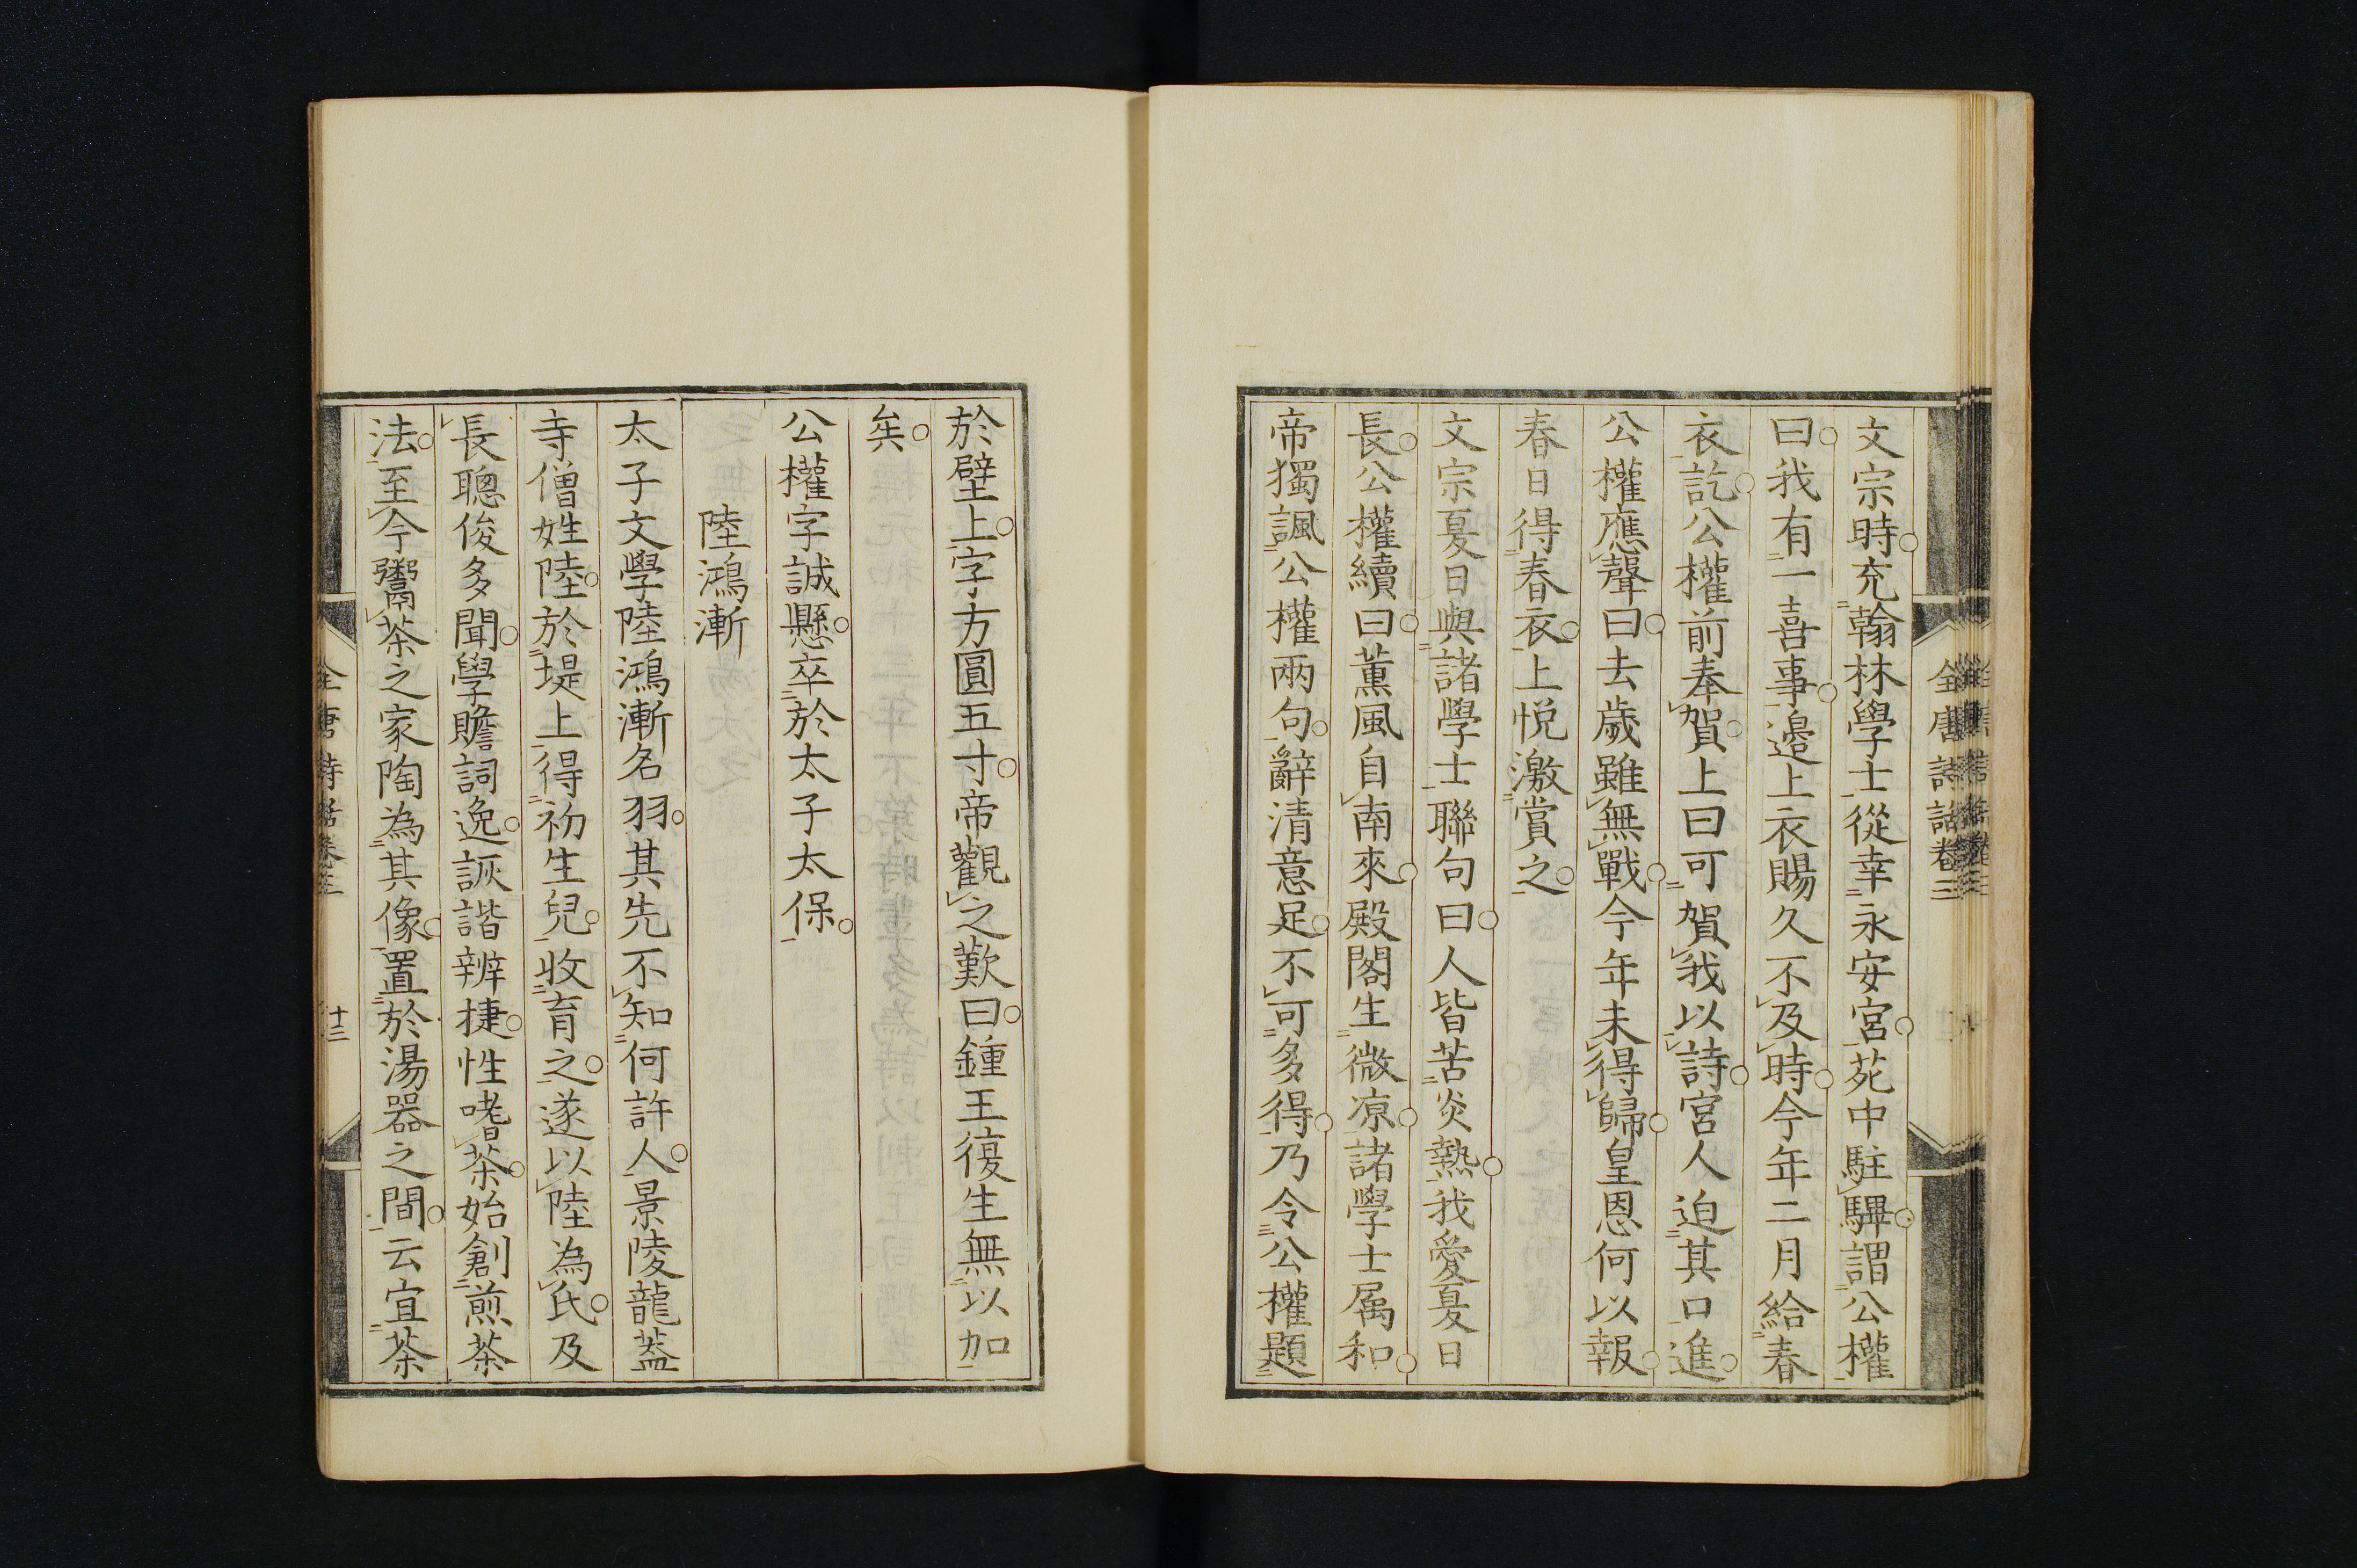 全唐詩話卷三
文宗時充翰林學士從幸永安宮苑中駐驆謂公權
曰我有一喜事邉上衣賜久不及時今年二月給春
衣訖公權前奉賀上曰可賀我以詩宮人迫其口進
公權應聲曰去歲雖無戰今年未得歸皇恩何以報
春日得春衣上悅激賞之
文宗夏日與諸學士聯句曰人皆苦炎熱我愛夏日
長公權續曰薫風自南來殿閣生微凉諸學士属和
帝獨諷公權兩句辭清意足不可多得乃令公權題
於壁上字方圓五寸帝觀之歎曰鍾王復生無以加
矣
公權字誠懸卒於太子太保
陸鴻漸
太子文學陸鴻漸名羽其先不知何許人景陵龍葢
寺僧姓陸於堤上得初生兒收育之遂以陸為氏及
長聰俊多聞學贍詞逸詼諧辨捷性嗜茶始創煎茶
法至今鬻茶之家陶為其像置於湯器之間云宜茶
全唐詩話卷三
十三